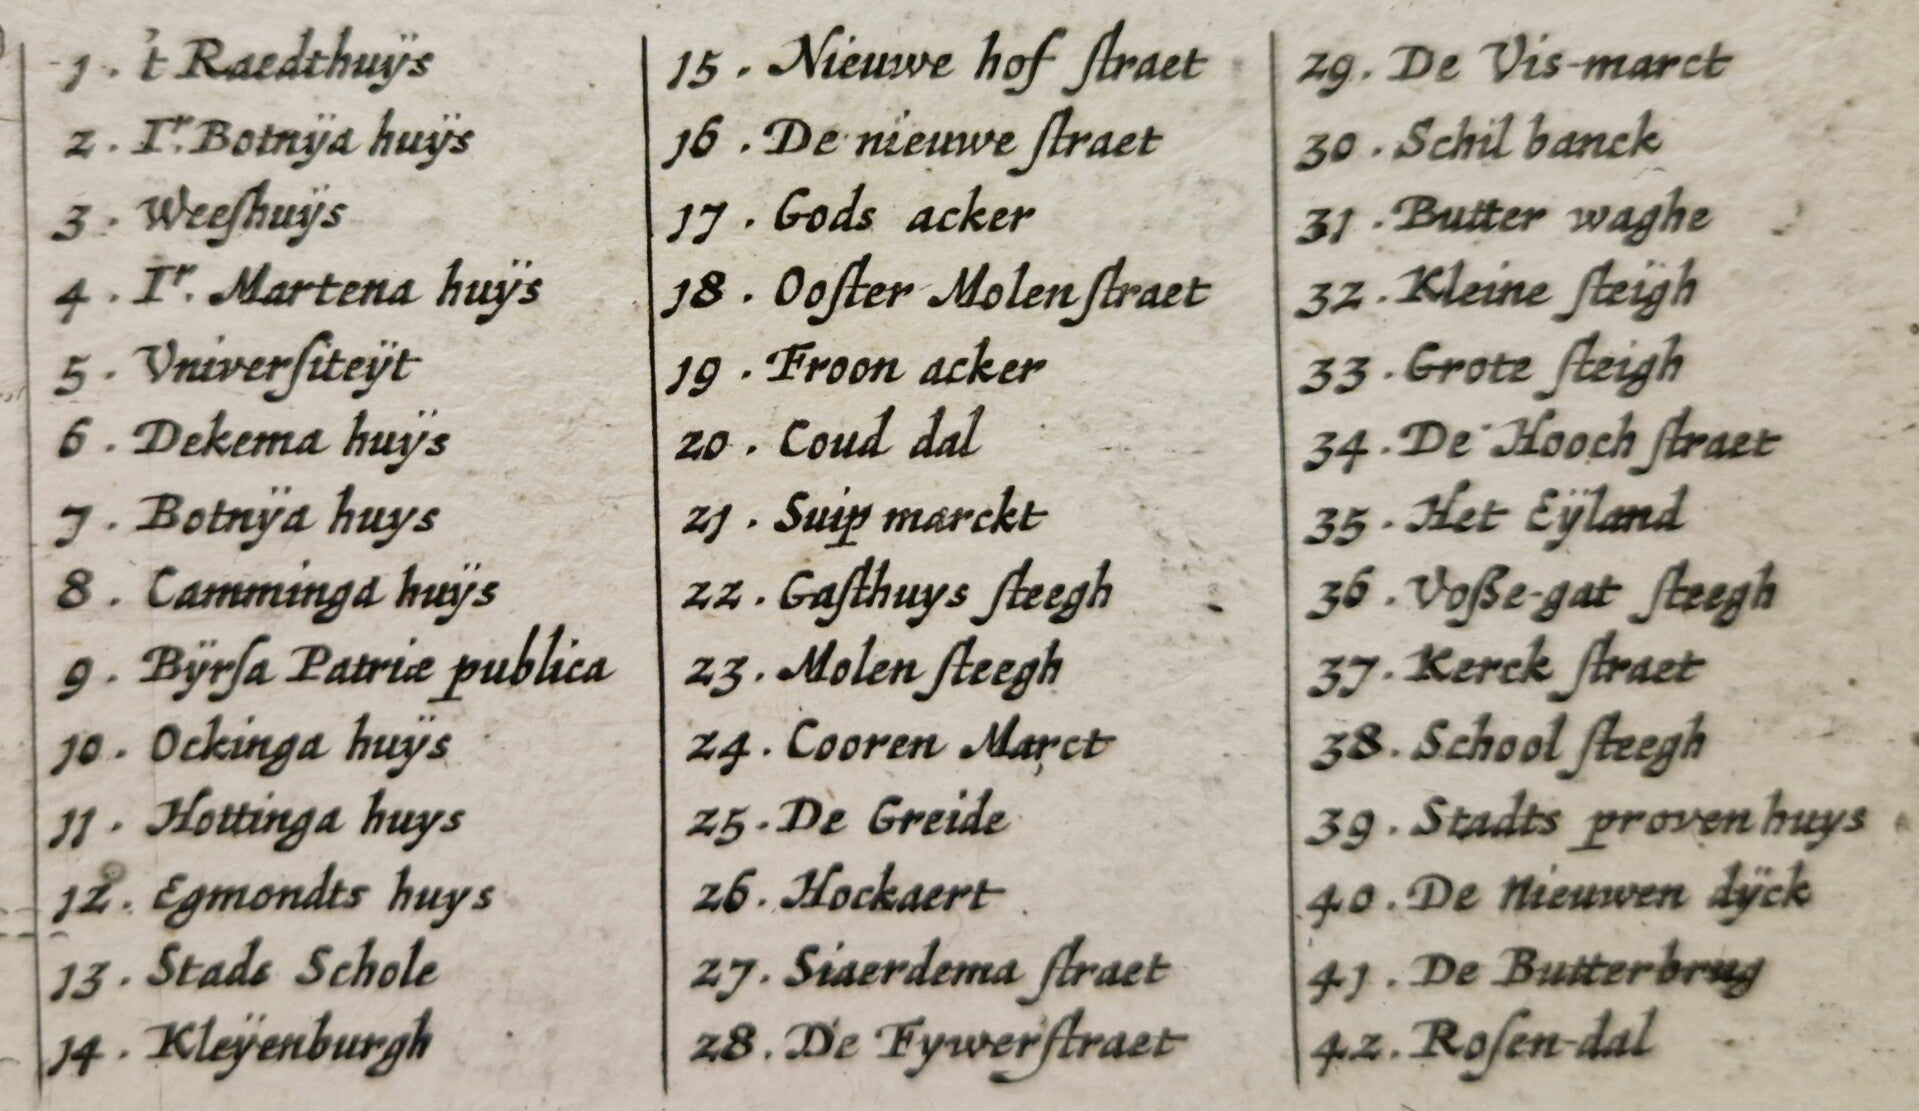 1. 't Raedthuÿs
2. Ir. Botnÿa huÿs
3. Weeſhuÿs
4. Ir. Martena huÿs
5. Vniverſiteÿt
6. Dekema huÿs
7. Botnÿa huys
8. Camminga huÿs
9. Bÿrſa Patriæ publica
10. Ockinga huÿs
11. Hottinga huys
12. Egmondts huys
13. Stads Schole
14. Kleÿenburgh
15. Nieuwe hof ſtraet
16. De nieuwe ſtraet
17. Gods acker
18. Ooſter Molenſtraet
19. Froon acker
20. Coud dal
21. Suip marckt
22. Gaſthuys ſteegh
23. Molen ſteegh
24. Cooren Marct
25. De Greide
26. Hockaert
27. Siaerdema ſtraet
28. De Fywerſtraet
29. De Vis-marct
30. Schil banck
31. Butter waghe
32. Kleine ſteigh
33. Grote ſteigh
34. De Hooch ſtraet
35. Het Eÿland
36. Voße-gat ſteegh
37. Kerck ſtraet
38. School ſteegh
39. Stadts proven huys
40. De Nieuwen dÿck
41. De Butterbrug
42. Roſen-dal